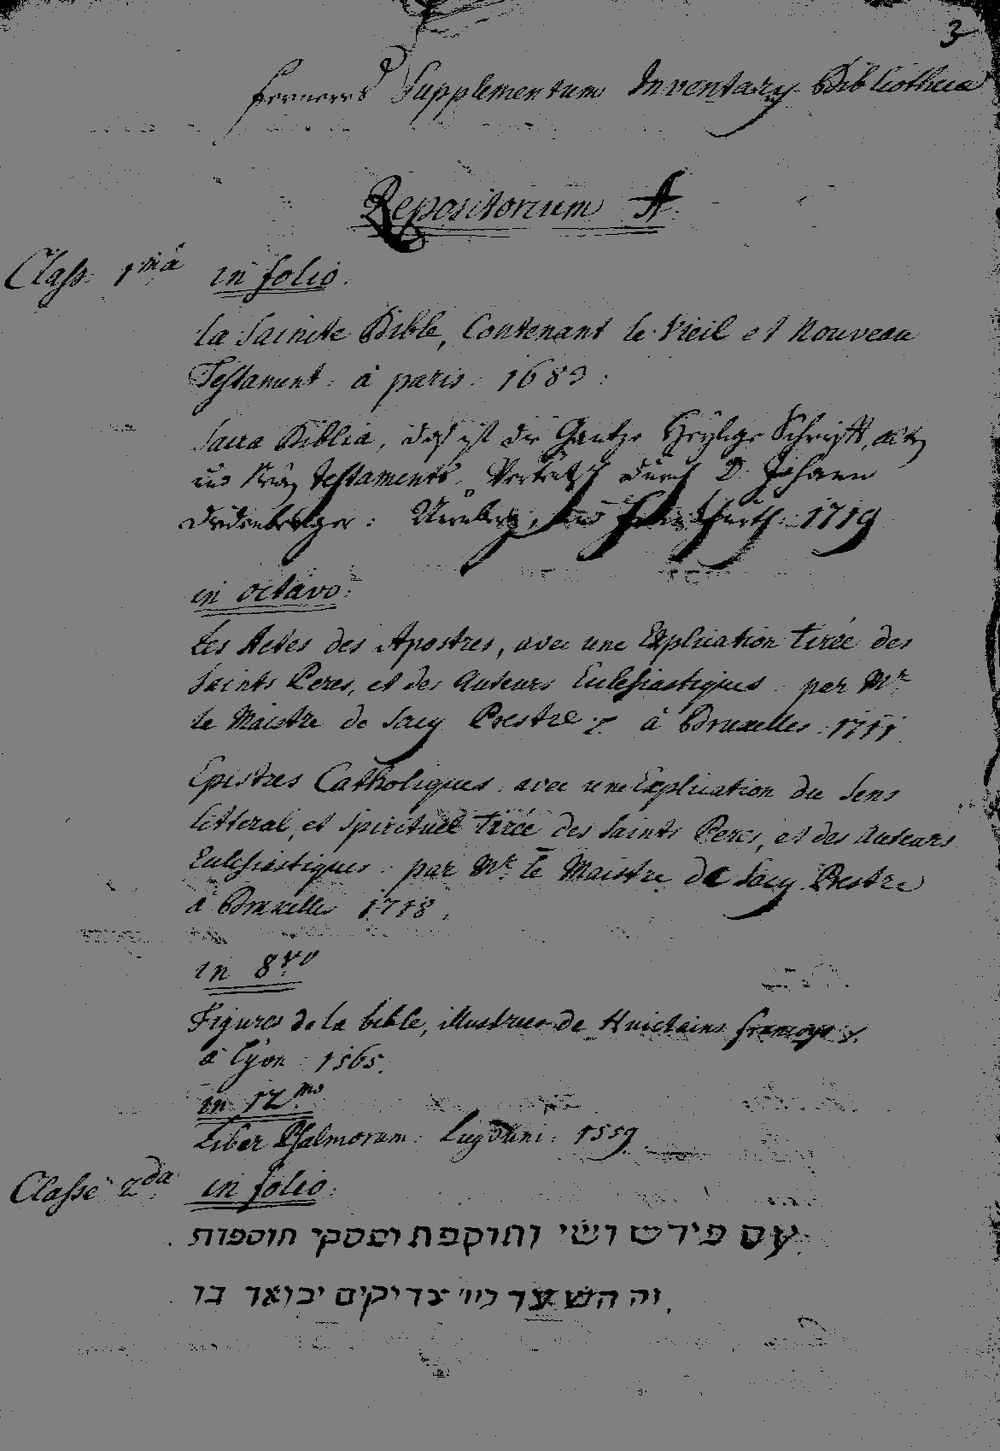 3
ferneres Supplementum Inventary Bibliotheca
Repositorium A.
Class: 1ma in folio.
La Saincte Bible, Contenant le Vieil et Nouveau
Testament: à paris: 1683:
Sacra Biblia, das ist die Gantze Heylige Schrifft, alten
und Testaments. durch D. Johann
Nürnberg, und Franckfurth: 1719
in octavo:
Les Actes des Apostres, avec une Explication tirée des
Saints Peres, et des Auteurs Eclesiastiques par Mr
le Maistre de Sacy Prestre à Bruxelles 1711.
Epistres Catholiques avec une Explication du Sens
litteral, et spirituel tirée des Saints Peres, et des Auteurs
Eclesiastiques par Mr le Maistre de Sacy Prestre
à Bruxelles 1718.
in 8vo
Figures de la bible, illustrees de Huictains françoys
à Lÿon: 1565.
in 12mo
Liber Psalmorum: Lugduni: 1559.
Classe 2da in folio:
עם פירש ושי ותוקפת ופסקי תוספות
זה השער ליי׳ צדיקים יבואר בו